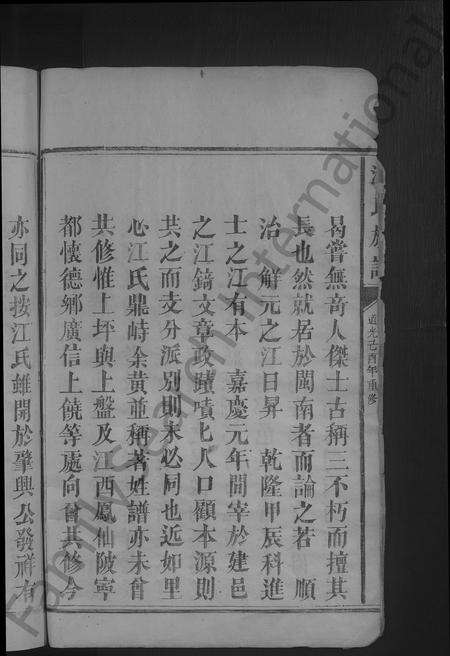 江氏族譜
道光己酉年重修
曷嘗無奇人傑士古稱三不朽而擅其
長也然就居於閩南者而論之若 順
治 解元之江日昇 乾隆甲辰科進
士之江有本 嘉慶元年間宰於建邑
之江錡文章政蹟嘖七人口顧本源則
共之而支分派別則未必同也近如里
心江氏鼎峙余黃並稱著姓譜亦未曾
共修惟上坪與上盤及江西鳳仙陂寧
都懷德鄉廣信上饒等處向曾共修今
亦同之按江氏雖開於肇興公發祥有
FamilySearch International